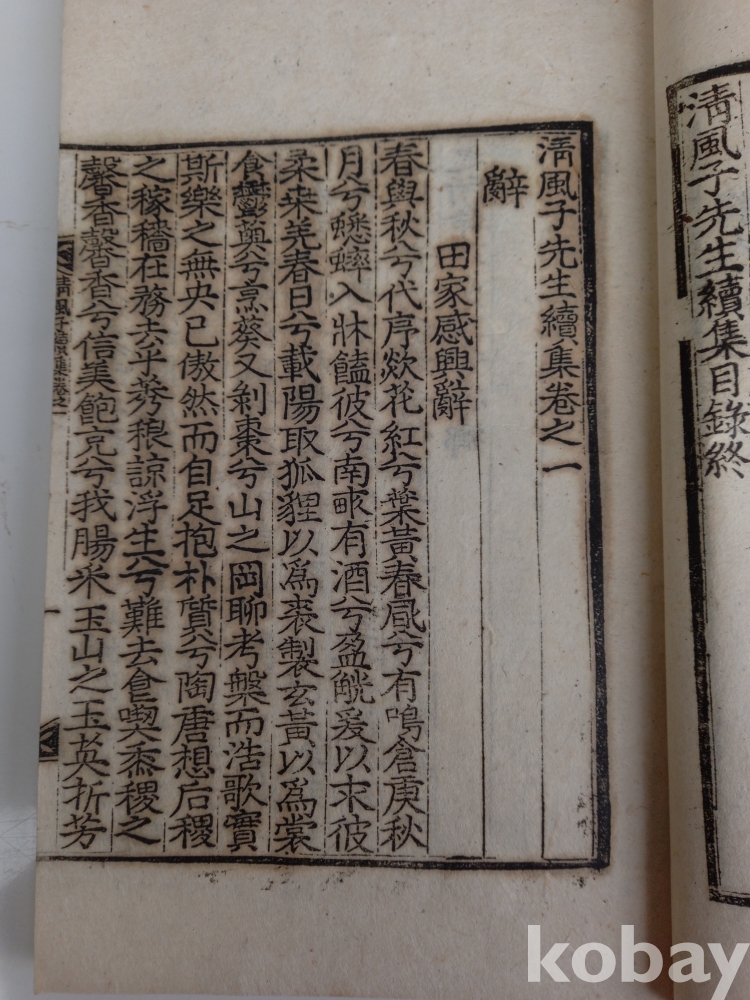 淸風子先生續集目錄終
淸風子先生續集卷之一
辭
田家感興辭
春與秋兮代序欻花紅兮葉黃春風兮有鳴倉庚秋
月兮蟋蟀入牀饁彼兮南畞有酒兮盈觥爰以求彼
柔桒羌春日兮載陽取狐貍以爲裘製玄黃以爲裳
食鬱薁兮烹葵又剝棗兮山之岡聊考槃而浩歌實
斯樂之無央已傲然而自足抱朴質兮陶唐想后稷
之稼穡在務去乎莠稂諒浮生兮難去食喫黍稷之
馨香馨香兮信美飽充兮我腸采玉山之玉英折芳
淸風子續集卷之一
一
kobay